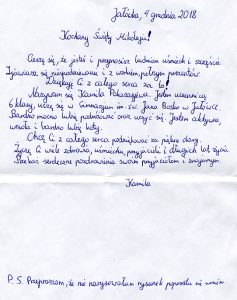 Jałówka, 4 grudnia 2018
Kochany Święty Mikołaju!
Cieszę się, że jesteś i przynosisz ludziom uśmiech i szczęście.
Zjawiasz się niespodziewanie i z workiem pełnym prezentów.
Dziękuję Ci z całego serca za to!
Nazywam się Kamila. Jestem uczennicą
6 klasy, uczę się w Gimnazjum im. św. Jana Bosko w
Bardzo mocno lubię podróżować oraz uczyć się. Jestem aktywna,
wesoła i bardzo lubię koty.
Chcę Ci z całego serca podziękować za piękne dary.
Życzę Ci wiele zdrowia, uśmiechu, przyjaciół i długich lat życia.
serdeczne pozdrowienia swoim przyjaciołom i znajomym.
Kamila
P.S. Przepraszam, że nie narysowałam rysunek poprostu nie umiem.